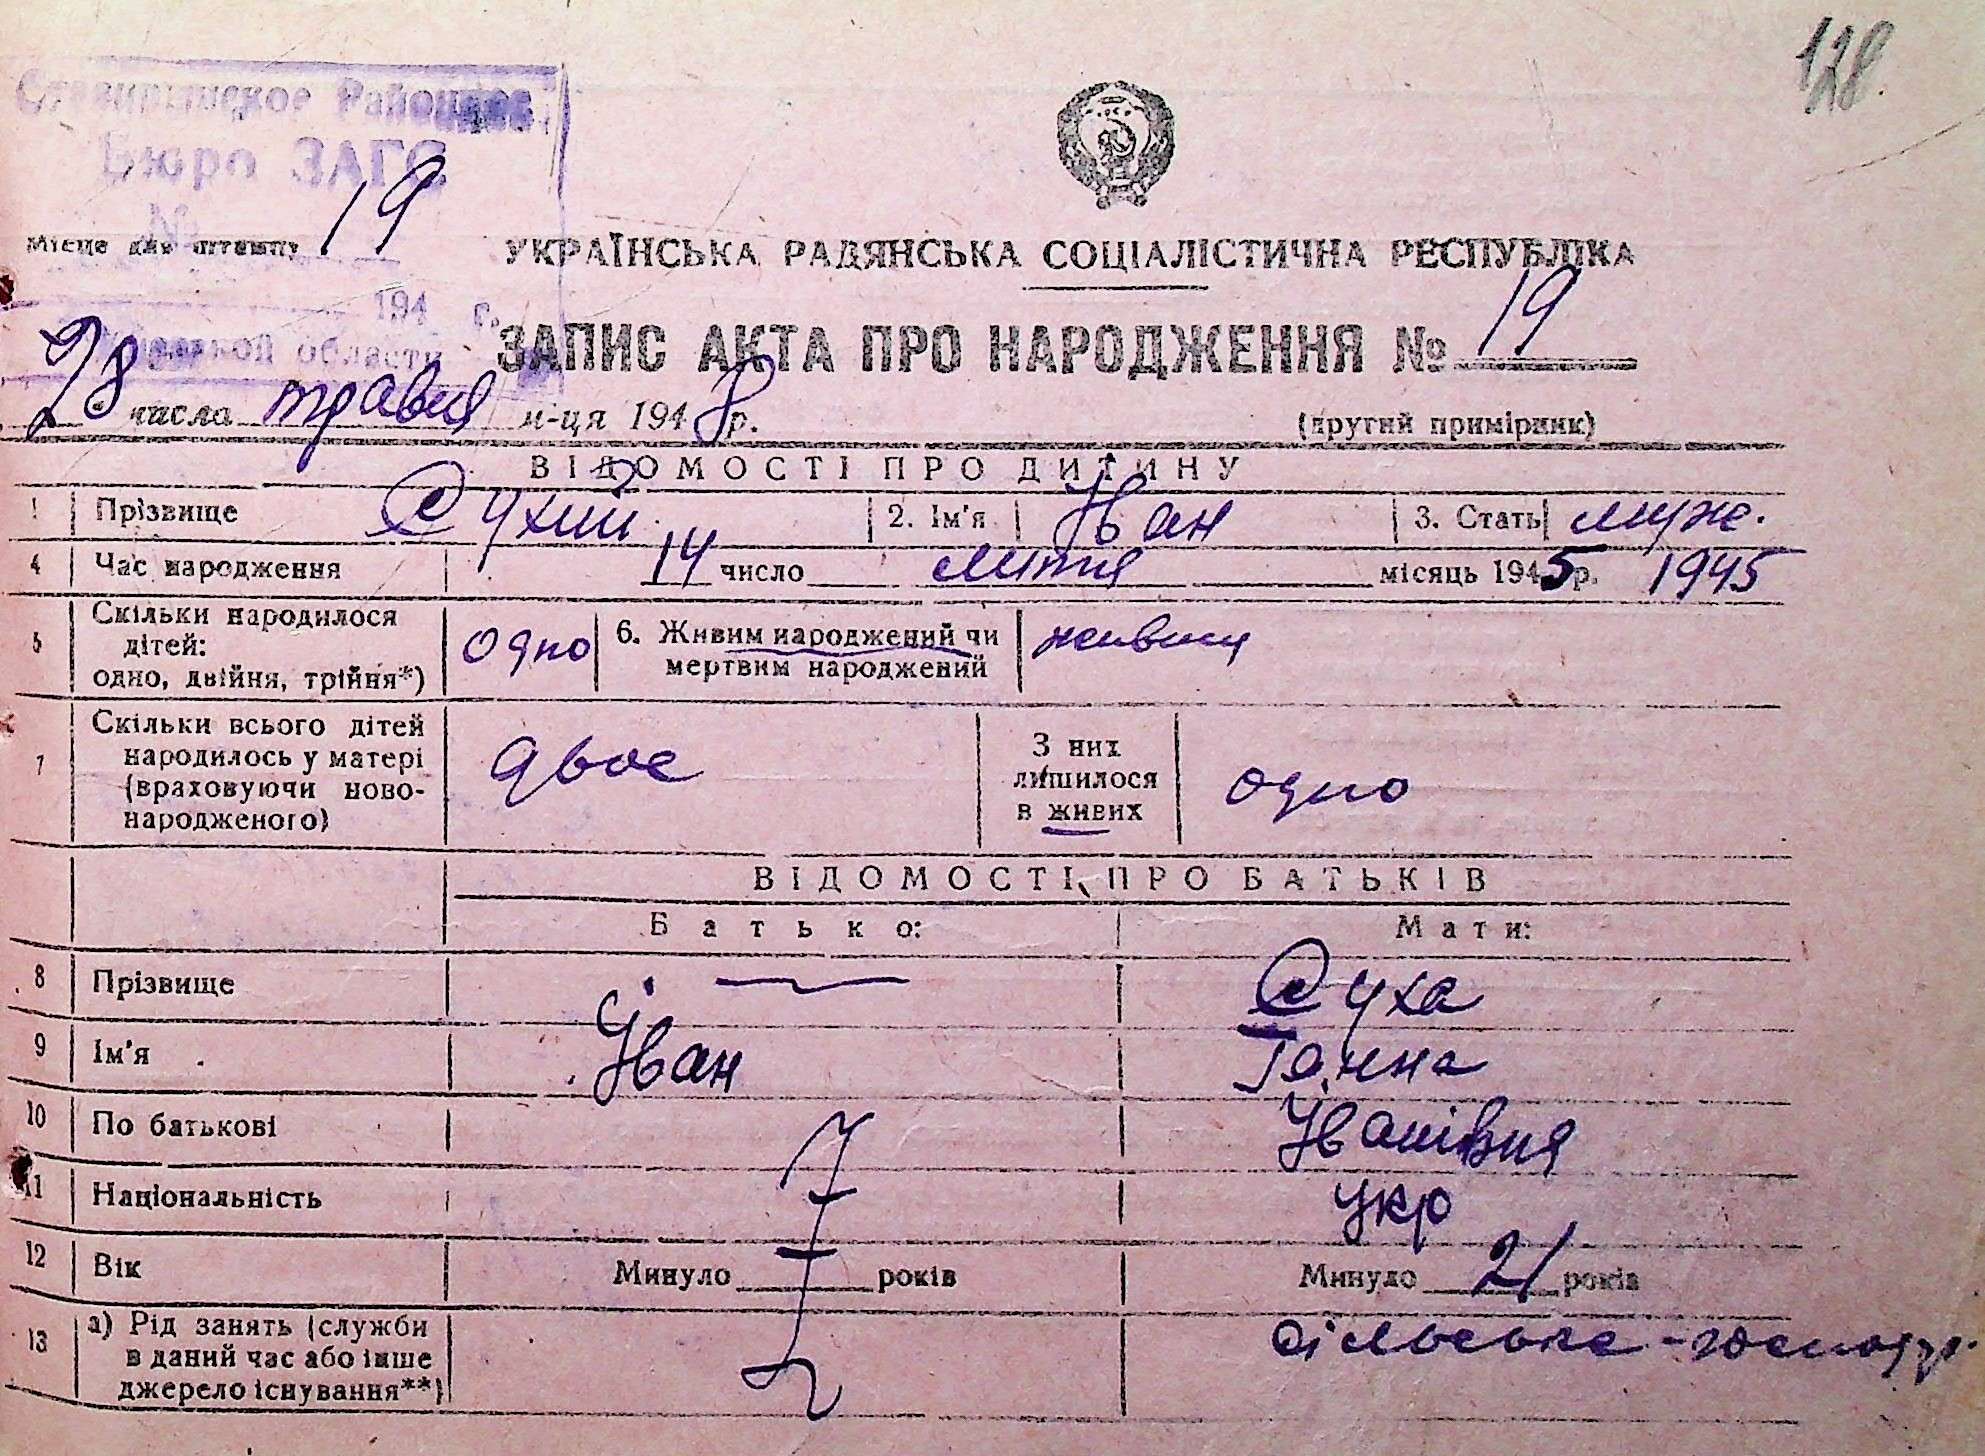 128.
Районное
Бюро ЗАГС
№ 19
Місце для штампу
194 г.
области
УКРАЇНСЬКА РАДЯНСЬКА СОЦІАЛІСТИЧНА РЕСПУБЛІКА
ЗАПИС АКТА ПРО НАРОДЖЕННЯ № 19
28 числа травня м-ця 1948 р.
(другий примірник)
ВІДОМОСТІ ПРО ДИТИНУ
1 Прізвище Сухий 2. Ім'я Іван 3. Стать муж.
4 Час народження 14 число липня місяць 1945 р. 1945
5 Скільки народилося дітей: одно, двійня, трійня*) одно 6. Живим народжений чи мертвим народжений живим
7 Скільки всього дітей народилось у матері (враховуючи новонародженого) двоє З них лишилося в живих одно
ВІДОМОСТІ ПРО БАТЬКІВ
Батько: Мати:
8 Прізвище — Суха
9 Ім'я Іван Ганна
10 По батькові Іванівна
11 Національність укр
12 Вік Минуло років Минуло 21 років
13 а) Рід занять (служби в даний час або інше джерело існування**) сільське-господар.